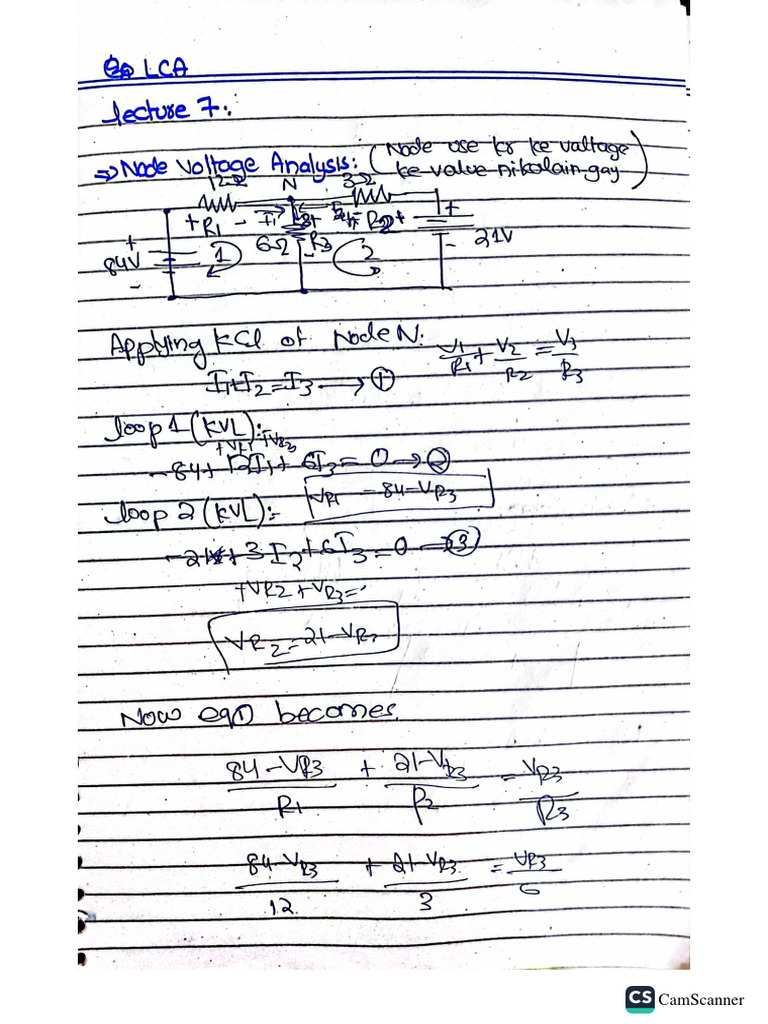 LCA
Lecture 7:.
⇒ Node Voltage Analysis: (Node use kr ke valtage
ke value nikalain gay)
12Ω N 3Ω
+ R1 - I1 R2 +
+ 84V - 1 6Ω R3 2 + - 21V
Applying KCL of Node N: V1/R1 + V2/R2 = V3/R3
I1+I2=I3 → ①
loop 1 (KVL):
+VR1 +VR3
-84+12I1+6I3=0→②
VR1 = 84-VR3
loop 2 (KVL):-
-21+3I2+6I3=0→③
+VR2+VR3=
VR2=21-VR3
Now eq① becomes.
84-VR3/R1 + 21-VR3/R2 = VR3/R3
84-VR3/12 + 21-VR3/3 = VR3/6
CS CamScanner